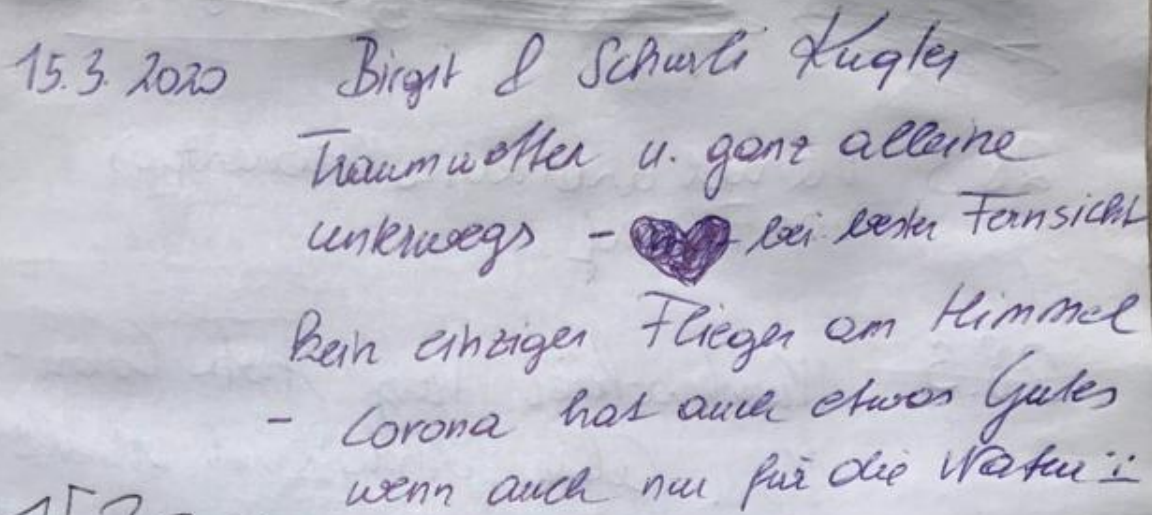 15.3. 2020 Birgit & Schurli Kugler
Traumwetter u. ganz alleine
unterwegs - bei bester Fernsicht
Kein einziger Flieger am Himmel
- Corona hat auch etwas Gutes
wenn auch nur für die Natur :-